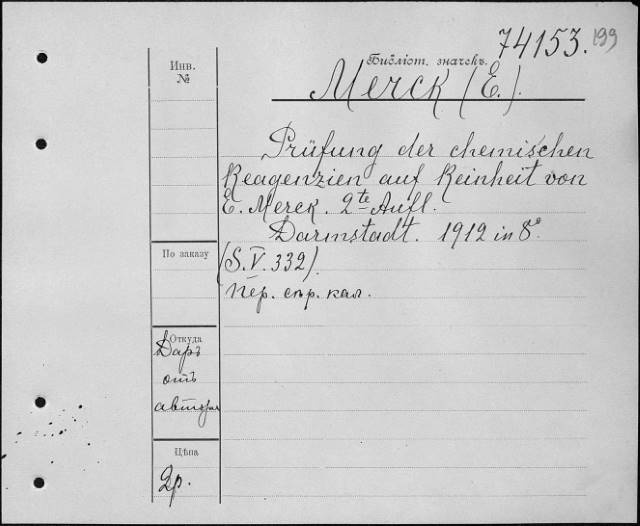 74153. 199
Библіот. значекъ.
Merck (E.).
Инв.
№
Prüfung der chemischen
Reagenzien auf Reinheit von
E. Merck. 2te Aufl.
Darmstadt. 1912 in 8°
По заказу
(S.V. 332).
пер. спр. кал.
Откуда
Даръ
отъ
автора
Цѣна
2р.